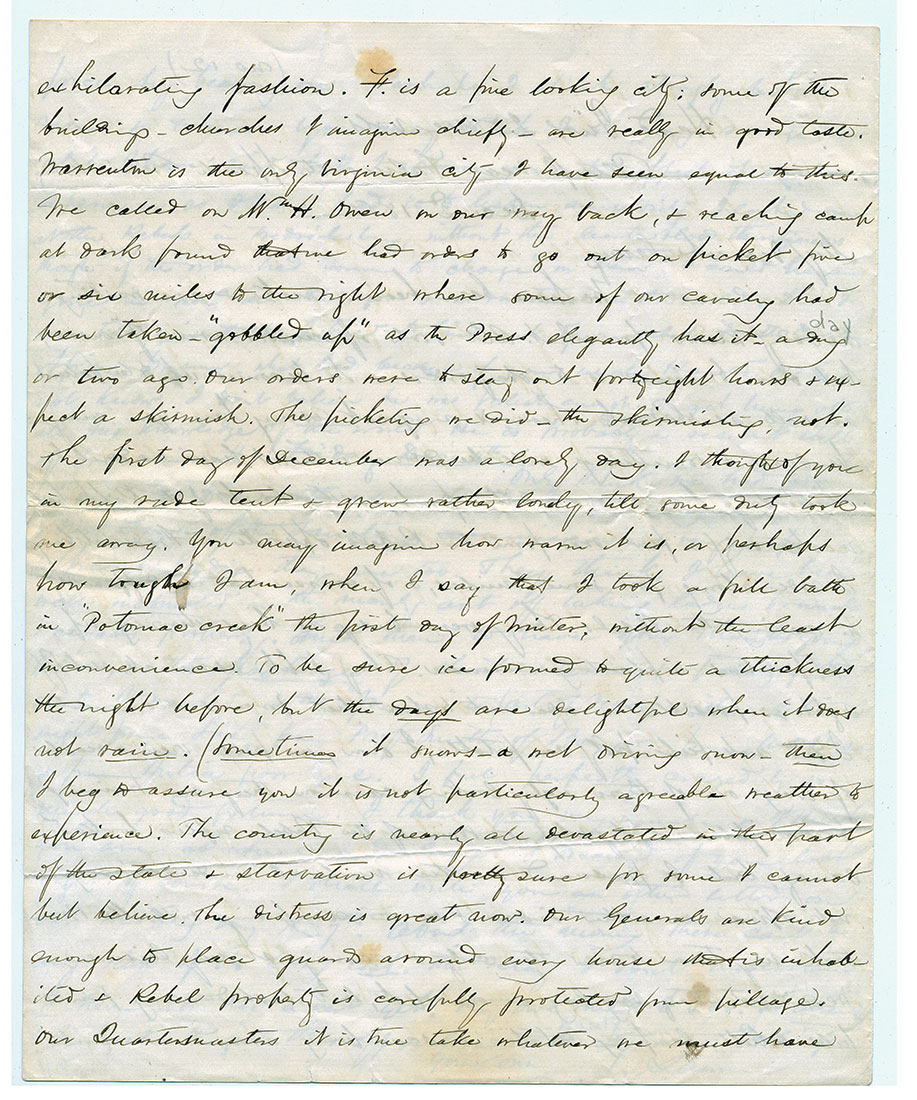 exhilarating fashion. F. is a fine looking city; some of the
buildings - churches I imagine chiefly - are really in good taste.
Warrenton is the only Virginia city I have seen equal to this.
We called on Wm H. Owen on our way back, & reaching camp
at dark found that we had orders to go out on picket five
or six miles to the right where some of our cavalry had
been taken - "gobbled up" as the Press elegantly has it - a day
day
or two ago. Our orders were to stay out forty eight hours & ex-
pect a skirmish. The picketing we did - the skirmishing, not.
The first day of December was a lovely day. I thought of you
in my rude tent & grew rather lonely, till some duty took
me away. You may imagine how warm it is, or perhaps
how tough I am, when I say that I took a full bath
in "Potomac creek" the first day of Winter, without the least
inconvenience. To be sure ice formed to quite a thickness
the night before, but the days are delightful when it does
not rain. (Sometimes it snows - a wet driving snow - then
I beg to assure you it is not particularly agreeable weather to
experience. The country is nearly all devastated in this part
of the state & starvation is pretty sure for some I cannot
but believe. The distress is great now. Our Generals are kind
enough to place guards around every house that is inhab-
ited & Rebel property is carefully protected from pillage.
Our Quartermasters it is true take whatever we must have